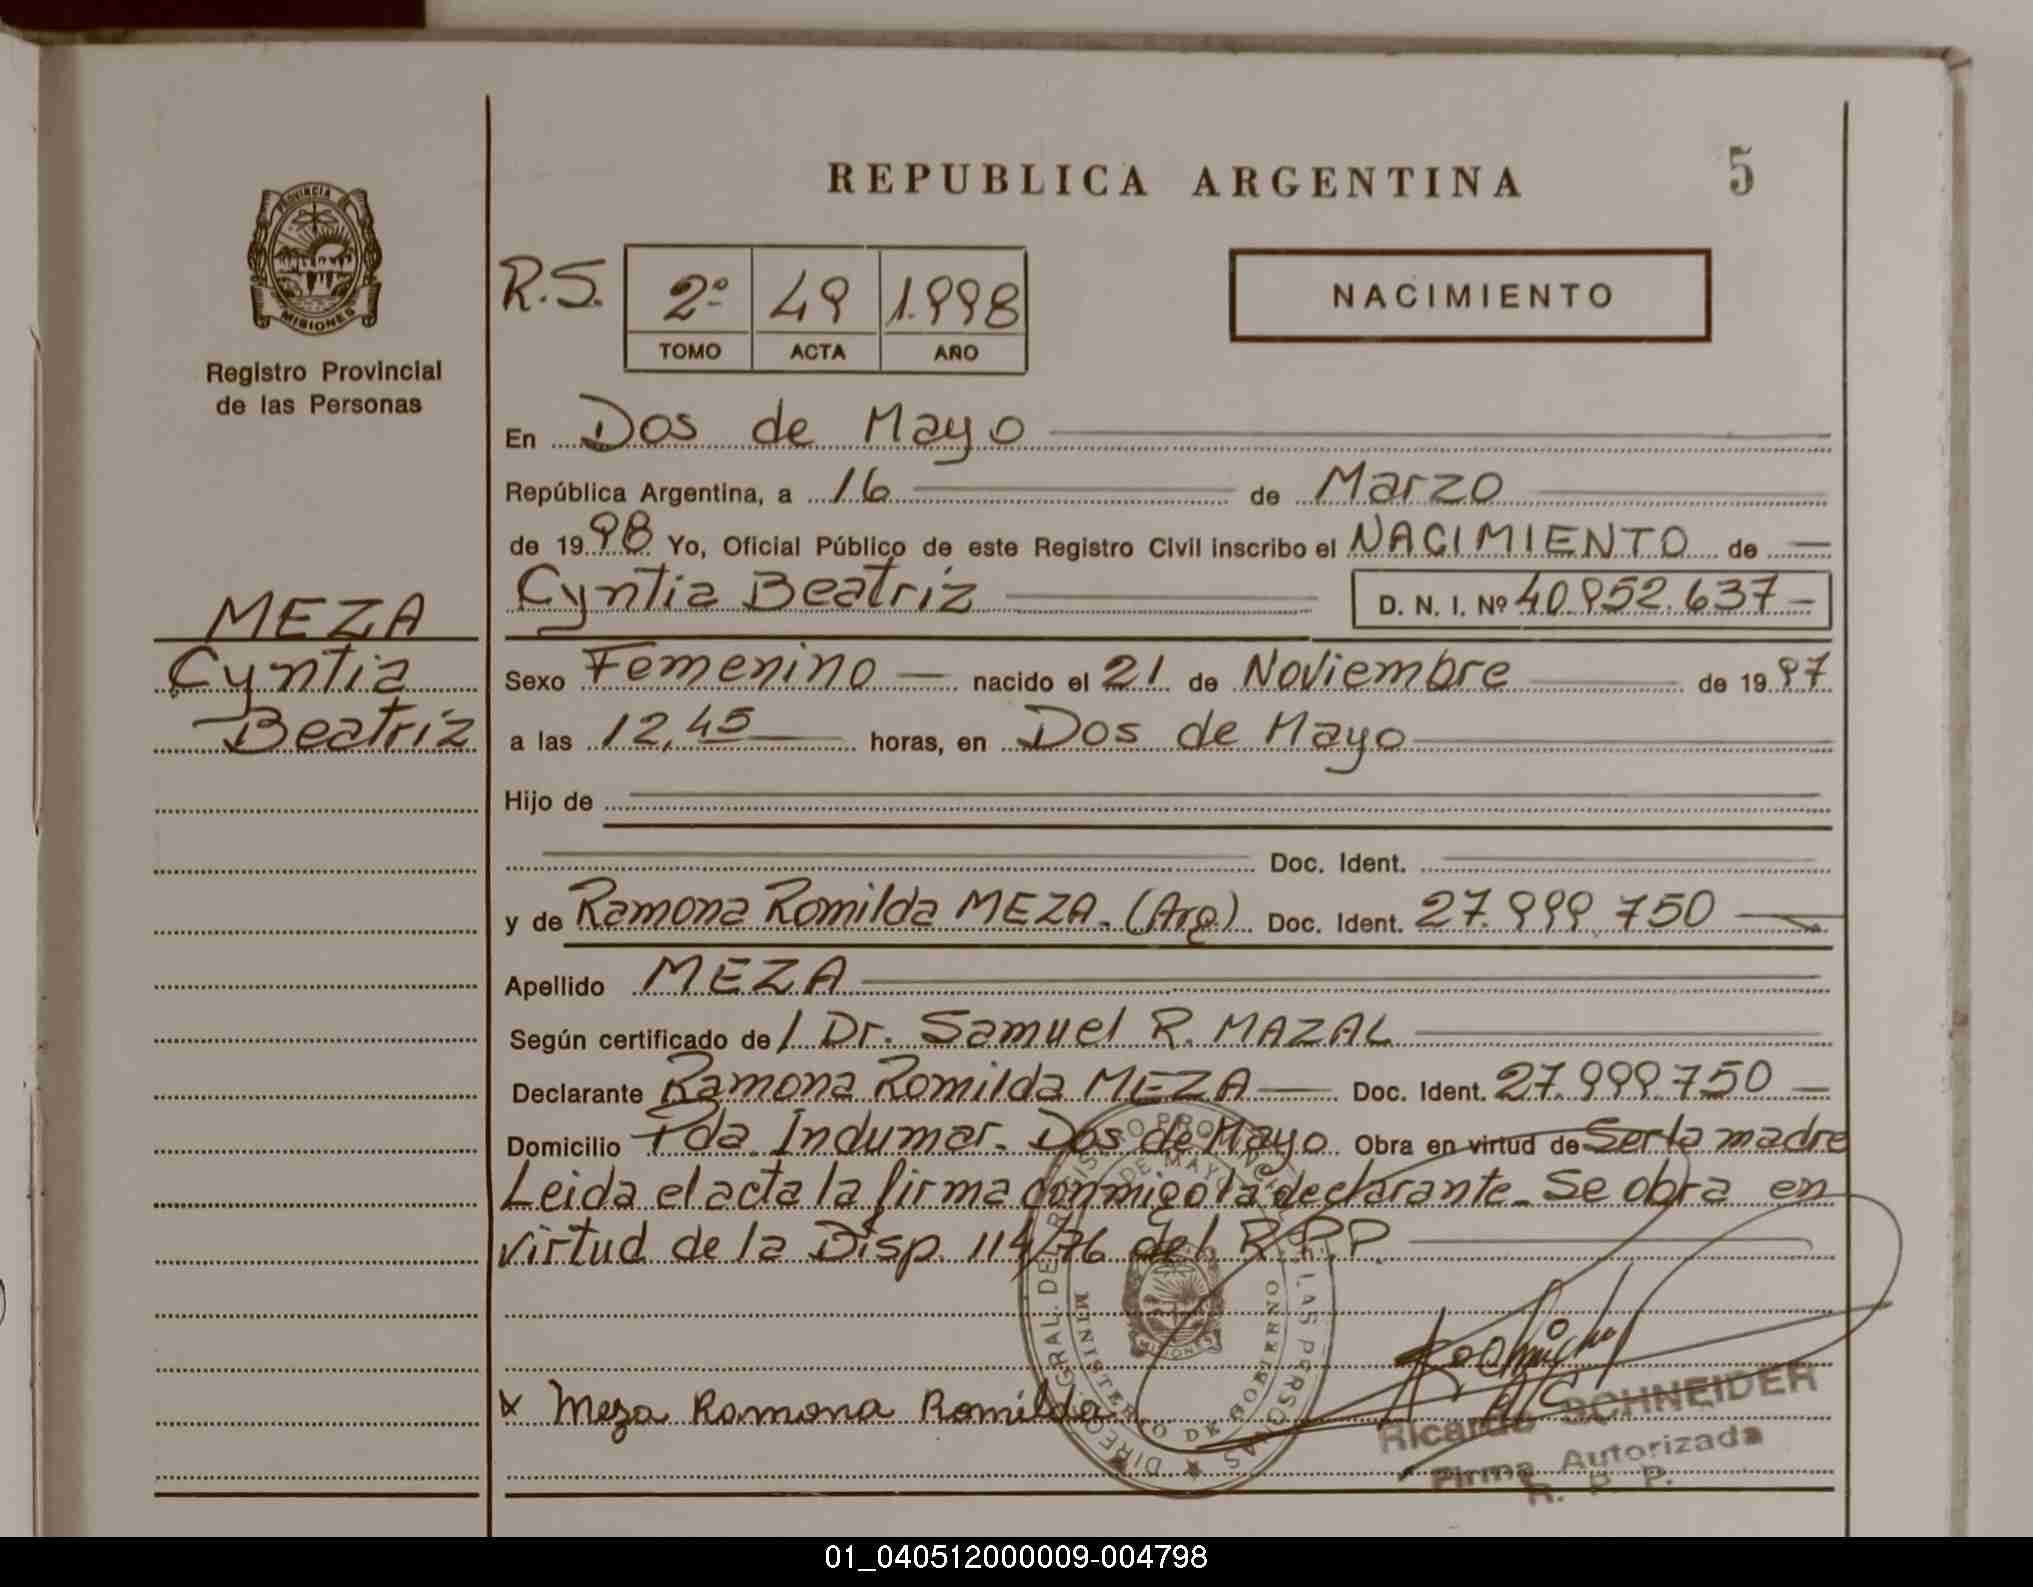 REPUBLICA ARGENTINA
5
PROVINCIA DE
MISIONES
Registro Provincial
de las Personas
R.S.
2º 49 1.998
TOMO ACTA AÑO
NACIMIENTO
En Dos de Mayo
República Argentina, a 16 de Marzo
de 1998 Yo, Oficial Público de este Registro Civil inscribo el NACIMIENTO de
Cyntia Beatriz D. N. I. Nº 40.952.637
MEZA
Cyntia
Beatriz
Sexo Femenino nacido el 21 de Noviembre de 1997
a las 12,45 horas, en Dos de Mayo
Hijo de
Doc. Ident.
y de Ramona Romilda MEZA. (Arg) Doc. Ident. 27.999.750
Apellido MEZA
Según certificado de / Dr. Samuel R. MAZAL
Declarante Ramona Romilda MEZA Doc. Ident. 27.999.750
Domicilio Pda. Indumar. Dos de Mayo Obra en virtud de Ser la madre
Leida el acta la firma conmigo la declarante. Se obra en
virtud de la Disp. 114/76 del R.P.P.
x Meza Ramona Romilda
DIREC. GRAL. DEL REGISTRO PROVINCIAL DE LAS PERSONAS
MINISTERIO DE GOBIERNO
DE MAY
MISIONES
Ricardo SCHNEIDER
Firma Autorizada
R. P. P.
01_040512000009-004798